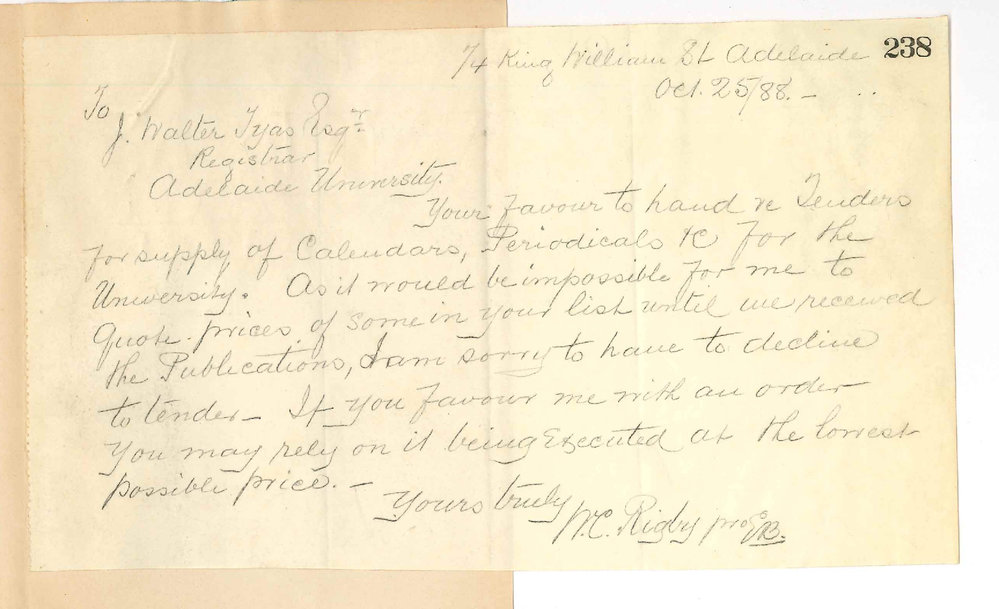 74 King William St Adelaide 238
Oct. 25/88. –
To
J. Walter Tyas Esqr
Registrar
Adelaide University.
Your favour to hand re Tenders
for supply of Calendars, Periodicals &c for the
University. As it would be impossible for me to
Quote prices of some in your list until we received
the Publications, I am sorry to have to decline
to tender – If you favour me with an order
you may rely on it being Executed at the lowest
possible price. –
Yours truly
W.C. Rigby pro EB.